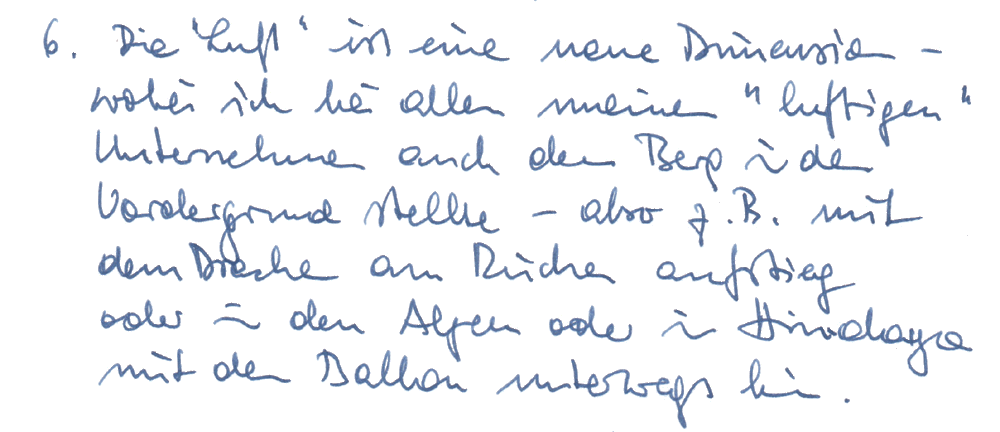 6. Die "Luft" ist eine neue Dimension –
wobei ich bei allen meinen "luftigen"
Unternehmen auch den Berg in den
Vordergrund stelle – also z.B. mit
dem Drachen am Rücken aufstieg
oder in den Alpen oder in Himalaya
mit dem Ballon unterwegs bin.